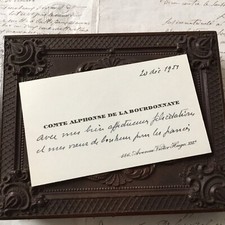 20 déc 1951
COMTE ALPHONSE DE LA BOURDONNAYE
avec mes bien affectueuses félicitations
et mes vœux de bonheur pour les fiancés
Avenue Victor Hugo, XVIᵉ